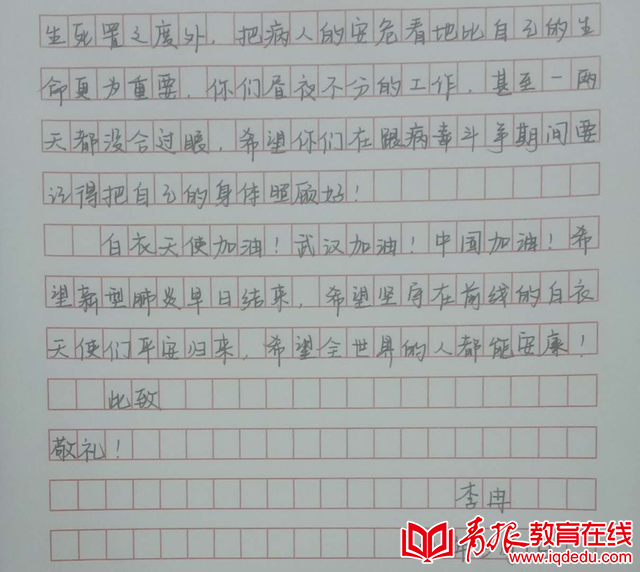 生死置之度外，把病人的安危看地比自己的生
命更为重要，你们昼夜不分的工作，甚至一两
天都没合过眼，希望你们在跟病毒斗争期间要
记得把自己的身体照顾好！
白衣天使加油！武汉加油！中国加油！希
望新型肺炎早日结束，希望坚守在前线的白衣
天使们平安归来，希望全世界的人都能安康！
此致
敬礼！
李冉
青报教育在线
www.iqdedu.com